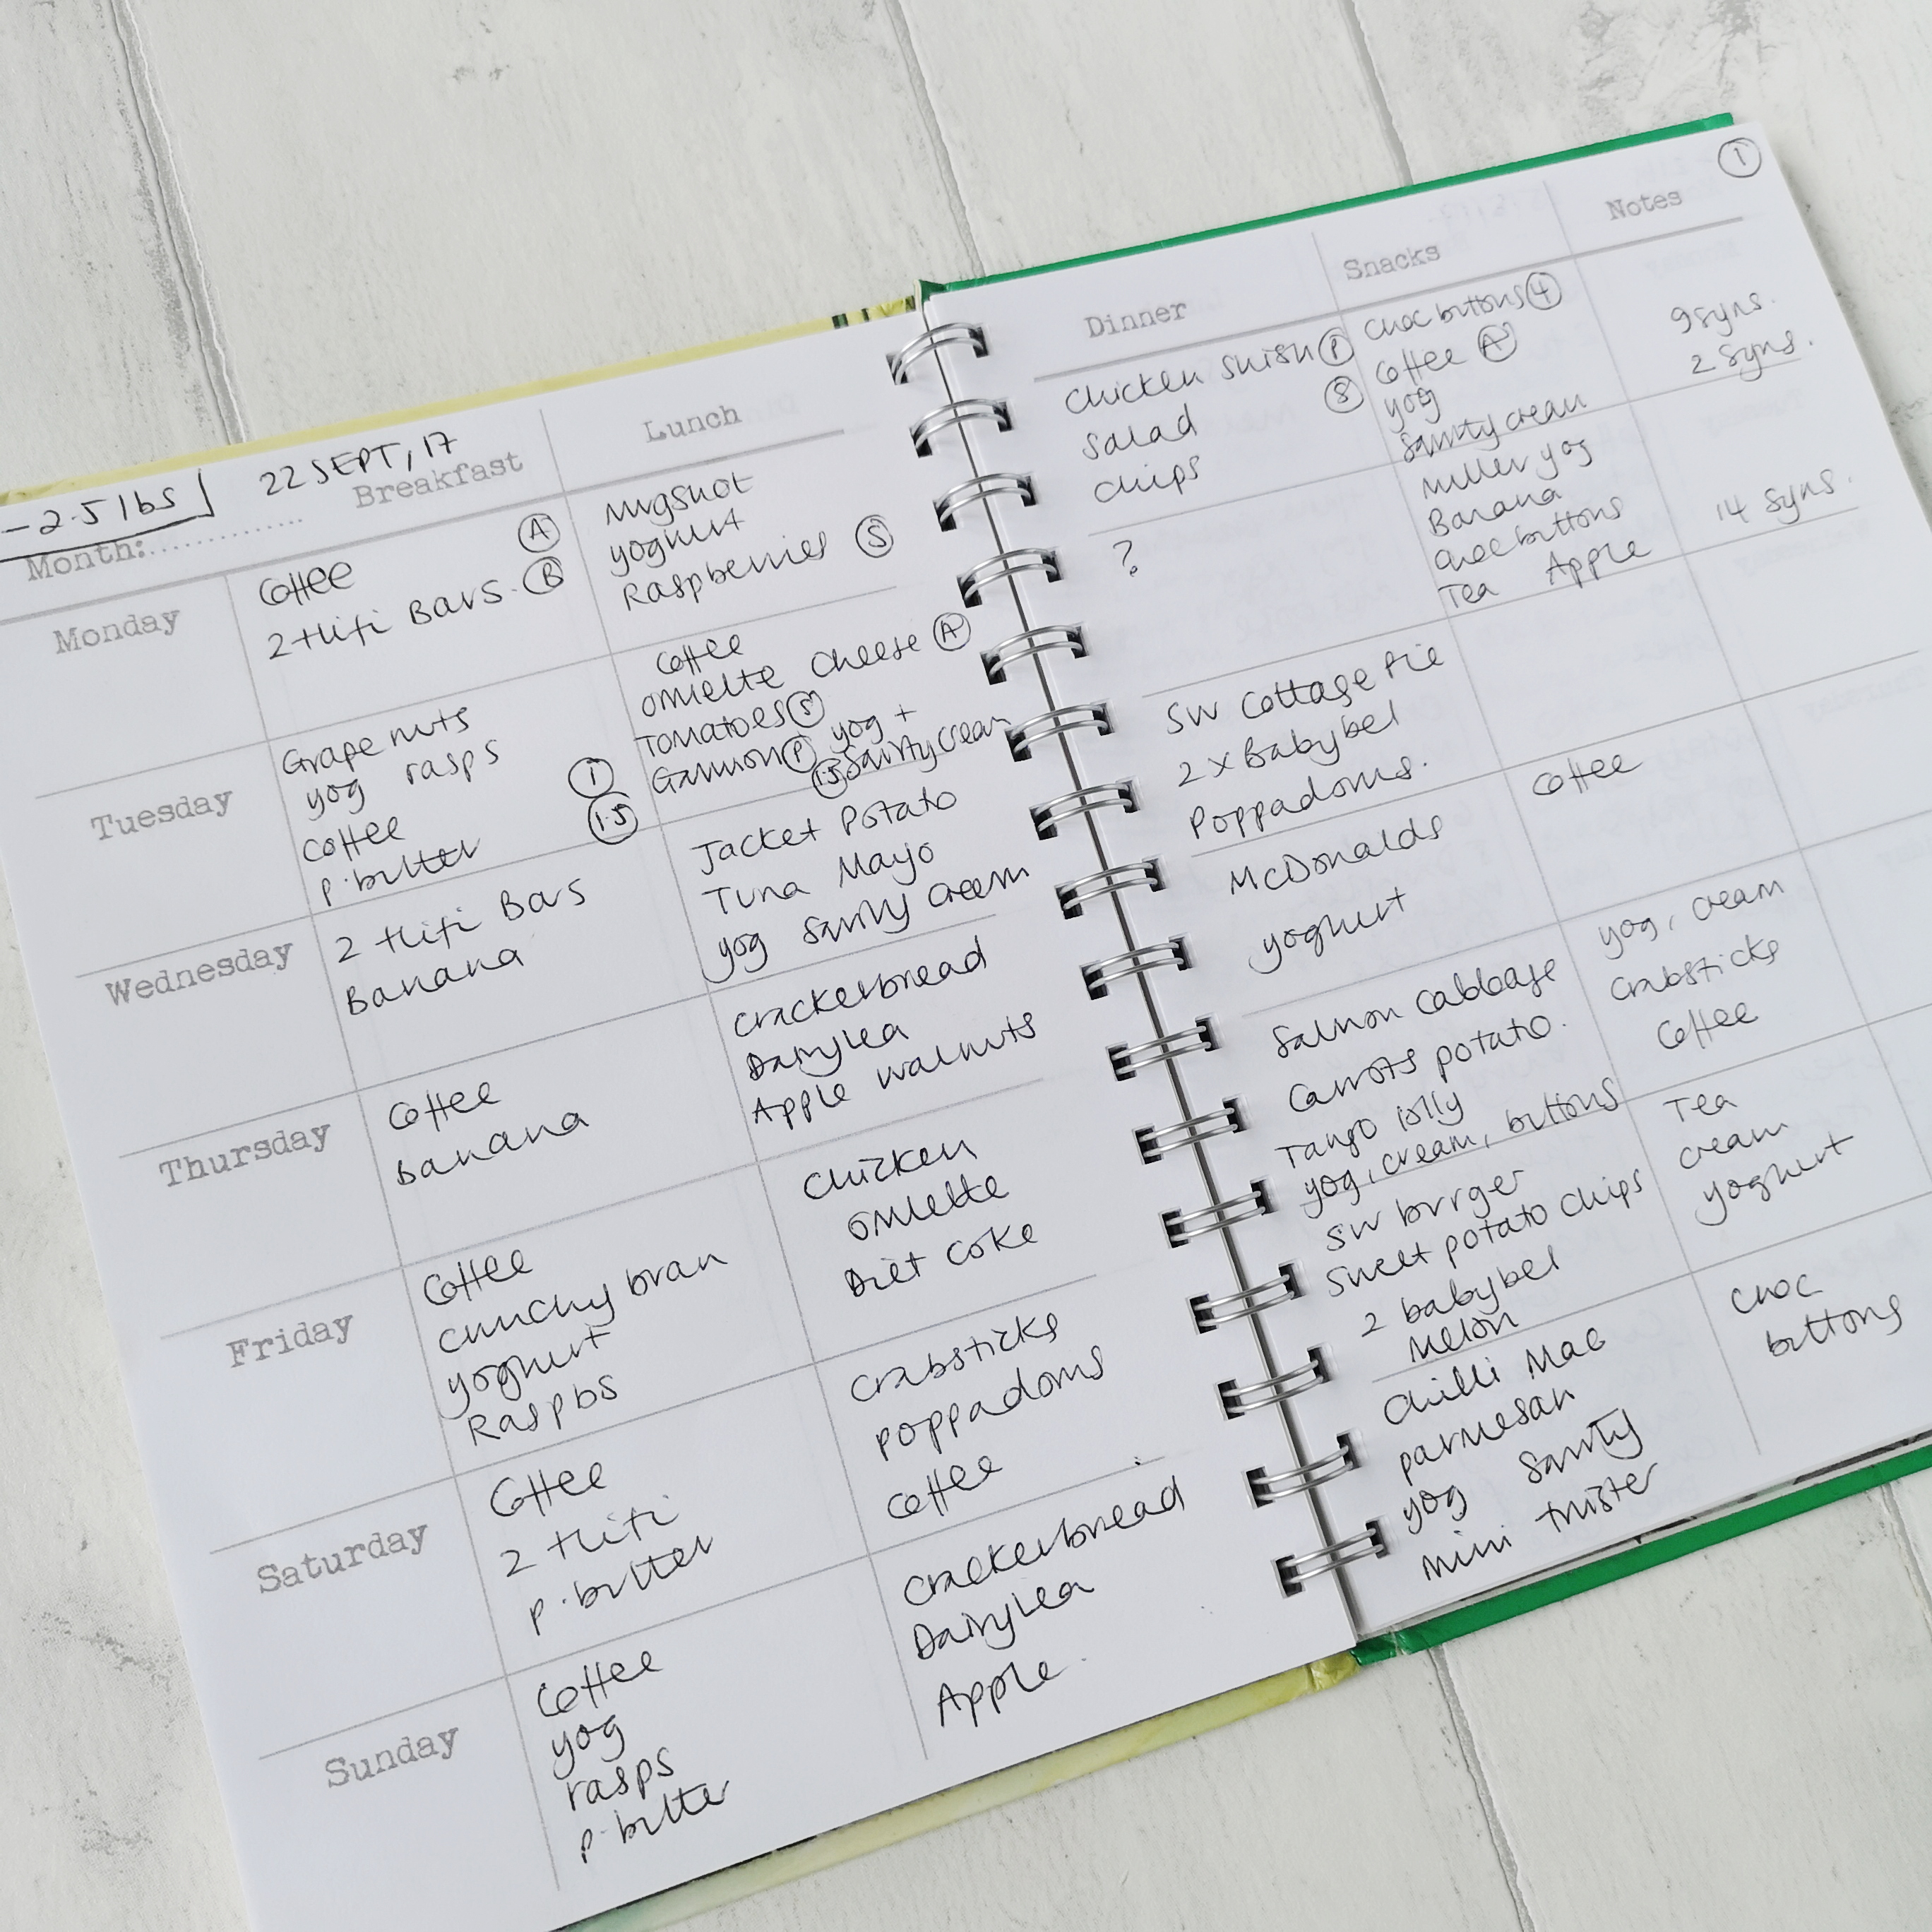 -2.5 lbs
22 SEPT, 17
Month:
Breakfast
Lunch
Monday
Coffee Ⓐ
2 Hifi Bars. Ⓑ
Mugshot
yoghurt
Raspberries Ⓢ
Tuesday
Grape nuts
yog rasps
Coffee ①
p.butter 1.5
Coffee
omlette cheese Ⓐ
Tomatoes Ⓢ yog +
Gammon Ⓟ 1.5 Sainty Cream
Wednesday
2 Hifi Bars
Banana
Jacket Potato
Tuna Mayo
yog Sainty Cream
Thursday
Coffee
Banana
Crackerbread
Dairylea
Apple walnuts
Friday
Coffee
crunchy bran
yoghurt
Raspbs
Chicken
omlette
Diet Coke
Saturday
Coffee
2 Hifi
p.butter
Crabsticks
poppadoms
Coffee
Sunday
Coffee
yog
rasps
p.butter
Crackerbread
Dairylea
Apple.
①
Dinner
Snacks
Notes
Chicken Ⓟ
Salad Ⓢ
chips
Choc buttons ④
Coffee Ⓐ
yog
Sainty cream
9 syns.
2 syns.
?
Muller yog
Banana
Choc buttons
Tea Apple
14 syns.
SW Cottage Pie
2 x Babybel
Poppadoms.
McDonalds
yoghurt
Coffee
Salmon Cabbage
Carrots potato.
Tango
yog, cream, buttons
yog, cream
Crabsticks
Coffee
SW burger
Sweet potato chips
2 babybel
Melon
Tea
cream
yoghurt
Chilli Mac
parmesan
yog Sainty
mini twister
Choc
buttons